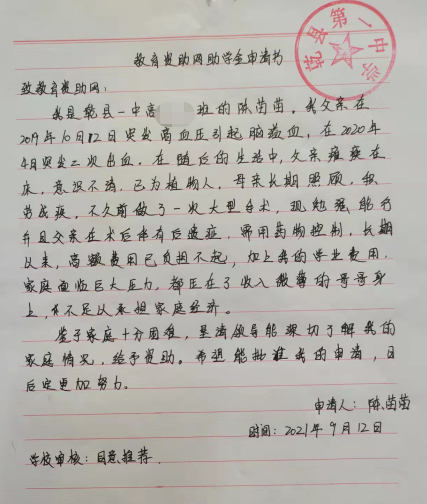 教育资助网助学金申请书
乾县第一中学
致教育资助网：
我是乾县一中高 班的陈苗苗，我父亲在
2019年10月12日突发高血压引起脑溢血，在2020年
4月突发二次出血，在随后的生活中，父亲瘫痪在
床，意识不清，已为植物人，母亲长期照顾，积
劳成疾，不久前做了一次大型手术，现勉强能行
并且父亲在术后伴有后遗症，需用药物控制，长期
以来，高额费用已负担不起，加上我的学业费用，
家庭面临巨大压力，都压在了收入微薄的哥哥身
上，不足以承担家庭经济。
鉴于家庭十分困难，呈请领导能深切了解我的
家庭情况，给予资助。希望能批准我的申请，日
后定更加努力。
申请人：陈苗苗
时间：2021年9月12日
学校审核：同意推荐.